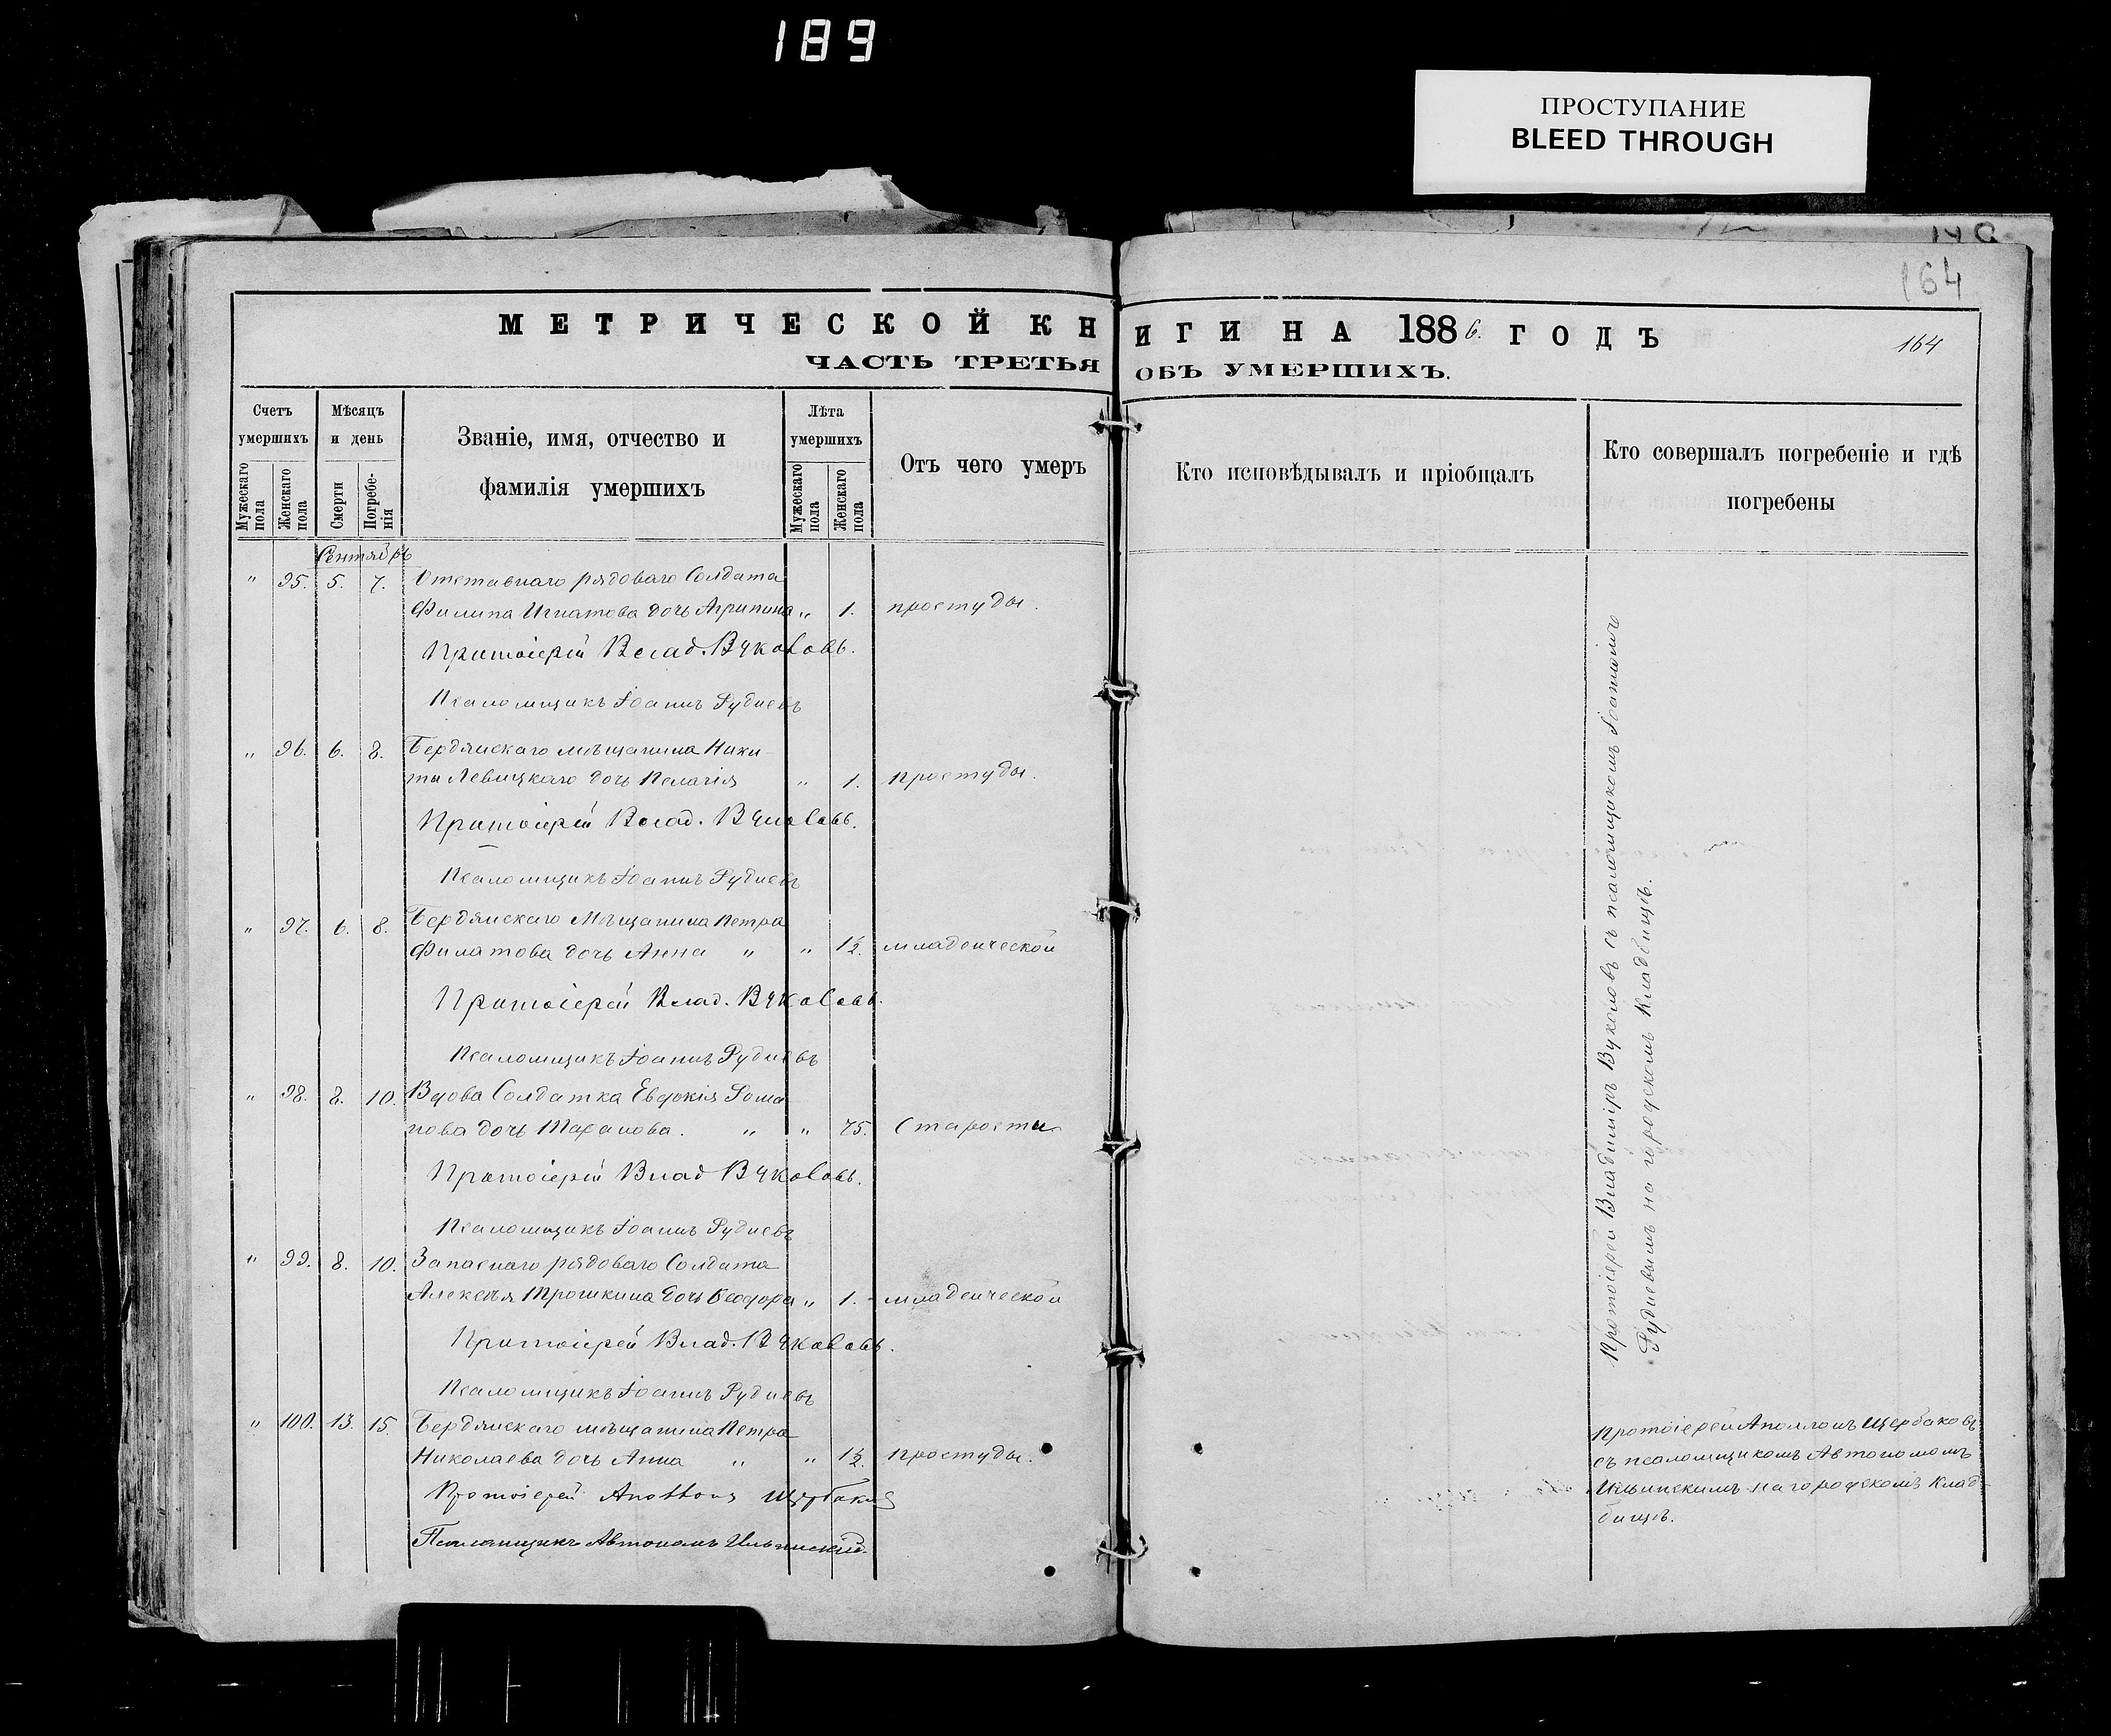 189
ПРОСТУПАНИЕ
BLEED THROUGH
164
МЕТРИЧЕСКОЙ КНИГИ НА 1886. ГОДЪ
164
ЧАСТЬ ТРЕТЬЯ ОБЪ УМЕРШИХЪ.
Счетъ умершихъ
Мужескаго пола
Женскаго пола
Мѣсяцъ и день
Смерти
Погребенія
Званіе, имя, отчество и
фамилія умершихъ
Лѣта умершихъ
Мужескаго пола
Женскаго пола
Отъ чего умеръ
Кто исповѣдывалъ и пріобщалъ
Кто совершалъ погребеніе и гдѣ
погребены
Сентябрь
" 95. 5. 7. Отставнаго рядоваго Солдата
Филипа Игнатова дочь Агрипина " 1. простуды.
Протоіерей Влад. Вуколовъ.
Псаломщикъ Іоаннъ Рудневъ
" 96. 6. 8. Бердянскаго мѣщанина Ники-
ты Левицкаго дочь Пелагія " 1. простуды.
Протоіерей Влад. Вуколовъ.
Псаломщикъ Іоаннъ Рудневъ
" 97. 6. 8. Бердянскаго Мѣщанина Петра
Филатова дочь Анна " " 1½. младенческой
Протоіерей Влад. Вуколовъ.
Псаломщикъ Іоаннъ Рудневъ
" 98. 8. 10. Вдова Солдатка Евдокія Рома
нова дочь " " 75. Старости
Протоіерей Влад Вуколовъ.
Псаломщикъ Іоаннъ Рудневъ
" 99. 8. 10. Запаснаго рядоваго Солдата
Алексѣя Трошкина дочь Ѳеодора " 1. младенческой
Протоіерей Влад. Вуколовъ.
Псаломщикъ Іоаннъ Рудневъ
Протоіерей Владиміръ Вуколовъ съ псаломщикомъ Іоанномъ
Рудневымъ на городскомъ Кладбищѣ.
" 100. 13. 15. Бердянскаго мѣщанина Петра
Николаева дочь Анна " " 1½. простуды.
Протоіерей Аполлонъ Щербаковъ
Псаломщикъ Автономъ Ильинскій.
Протоіерей Аполлонъ Щербаковъ
съ псаломщикомъ Автономомъ
Ильинскимъ на городскомъ Клад-
бищѣ.